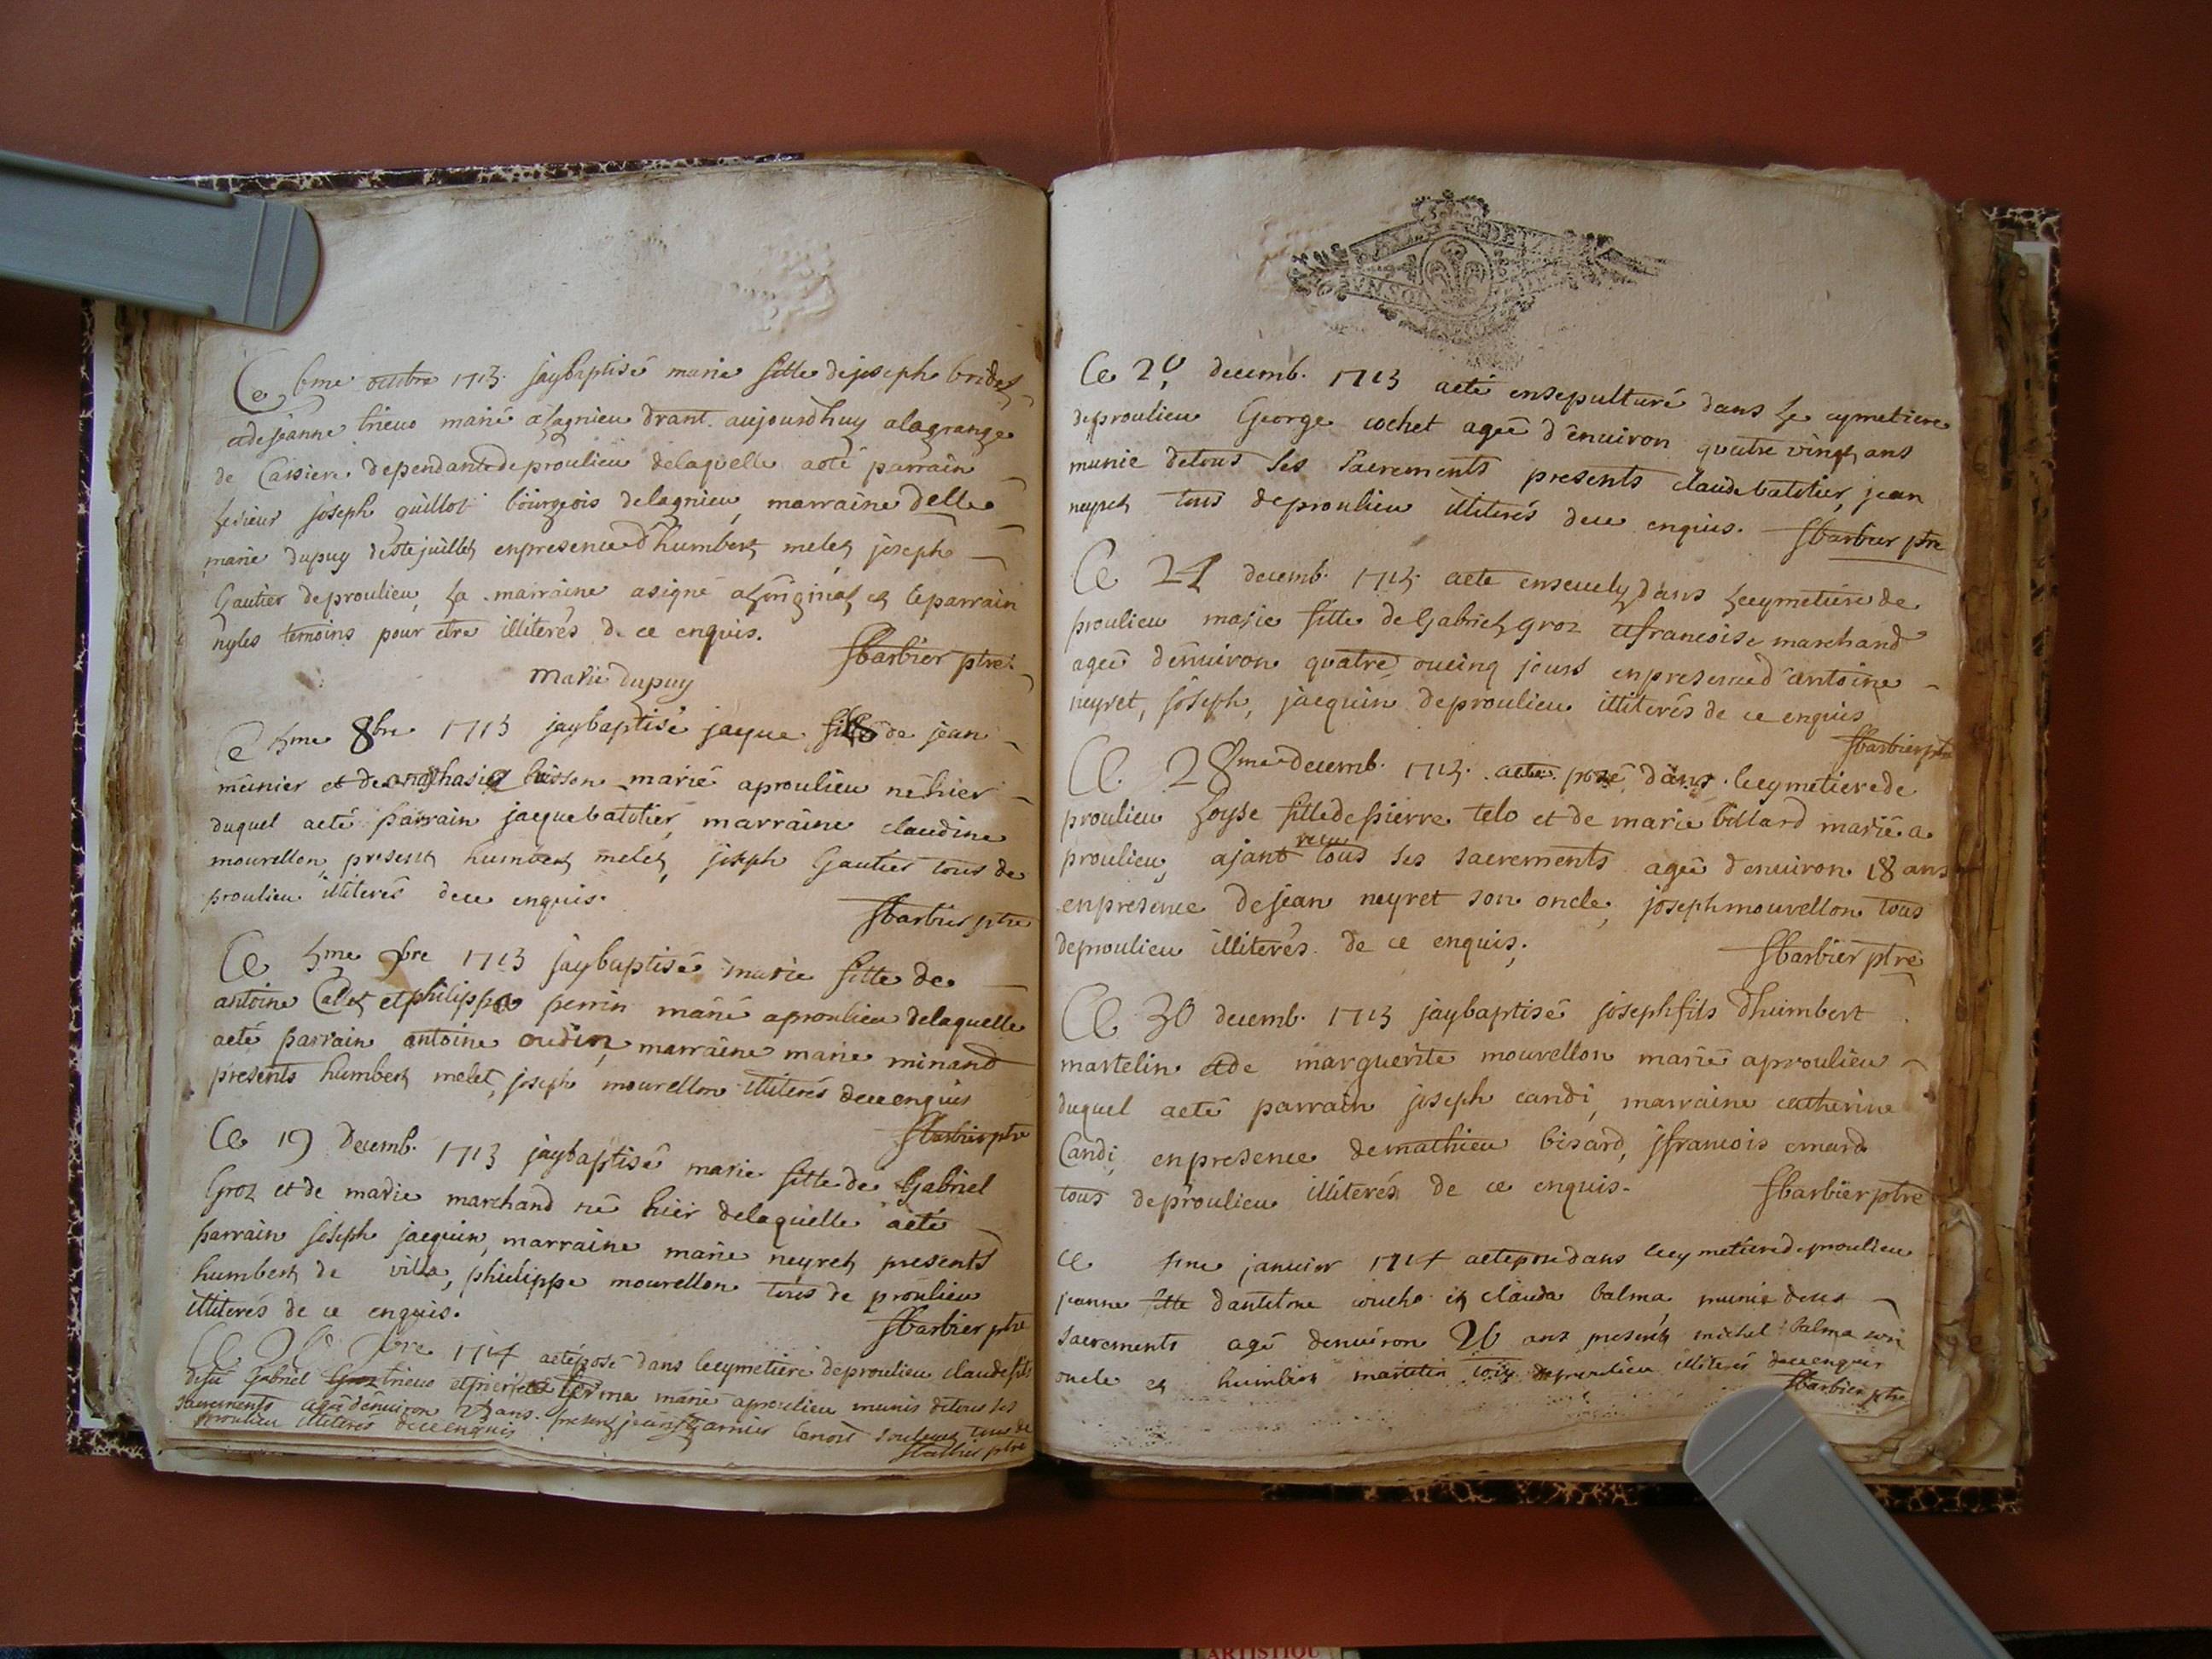 Ce 6me octobre 1713 jaybaptisé marie fille dejoseph bridet
adejeanne trieus marié alagnieu drant aujourdhuy alagrange
de dependantedeproulieu delaquelle aeté parrain
lesieur joseph guillot bourgeois delagnieu, marraine delle
marie dupuy destejuillet enpresence dhumbert melet joseph
Gautier deproulieu, la marraine asigné aloriginal et leparrain
nyles temoins pour etre illiterés de ce enquis.
Sbarbier ptre
Marie dupuy
Ce 5me 8bre 1713 jaybaptisé jaque fils de jean
munier et de buisson marié aproulieu né hier
duquel aeté parrain jaquebatotier, marraine claudine
mourellon, present humbert melet, joseph Gautier tous de
proulieu illiterés dece enquis.
Sbarbier ptre
Ce 5me 1713 jaybaptisé marie fille de
antoine Calet etphilippa perrin marié aproulieu delaquelle
aeté parrain antoine oudin, marraine marie minand
presents humbert melet, joseph mourellon illiterés deceenquis
Sbarbier ptre
Ce 19 Decemb. 1713 jaybaptisé marie fille de Gabriel
Groz et de marie marchand né hier delaquelle aeté
parrain joseph jacquin, marraine marie neyret presents
humbert de villa, philippe mourellon tous de proulieu
illiterés de ce enquis.
Sbarbier ptre
Ce 1714 aetéposé dans lecymetiere deproulieu claude fils
defû Gabriel Groz trieus marié aproulieu munis detous les
sacrements agé denuiron ans. present jean Garnier benoit tous de
proulieu illiterés deceenquis
Sbarbier ptre
Ce 20 decemb. 1713 aeté ensepulturé dans le cymetiere
deproulieu George cochet ageé d'enuiron quatre vingt ans
munie detous les Sacrements presents claudebatotier, jean
neyret tous deproulieu illiterés dece enquis. Sbarbier ptre
Ce 24 decemb. 1713. aeté enseuely dans lecymetiere de
proulieu marie fille de Gabriel groz etfrancoise marchand
ageé denuiron quatre oucinq jours enpresenced'antoine
neyret, joseph, jacquin deproulieu illiterés de ce enquis
Sbarbier ptre
Ce 28me decemb. 1713. aeté posé dans lecymetierede
proulieu Loyse filledepierre telo et de marie billard marié a
proulieu, ajant receu tous les sacrements ageé denuiron 18 ans
enpresence dejean neyret son oncle, josephmourellon tous
deproulieu illiterés de ce enquis,
Sbarbier ptre
Ce 30 decemb. 1713 jaybaptisé josephfils dhumbert
martelin et de marguerite mourellon marié aproulieu
duquel aeté parrain joseph candi, marraine catherine
Candi, enpresence demathieu bisard, francois emard
tous deproulieu illiterés de ce enquis.
Sbarbier ptre
Ce janvier 1714 aetéposédans lecymetieredeproulieu
jeanne fille dantitone et clauda balma, munie deses
sacrements agé denuiron 26 ans presents michel balma son
oncle et humbert martelin tous deproulieu illiterés deceenquis
Sbarbier ptre
ARTISTIQU